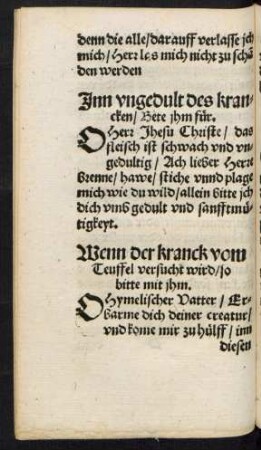 denn die alle/darauff verlasse ich
mich/Herr las mich nicht zu schā
den werden
Inn vngedult des kran-
cken/Bete jhm für.
O Herr Jhesu Christe/das
fleisch ist schwach vnd vn-
gedultig/Ach lieber Herre
brenne/hawe/stiche vnnd plage
mich wie du wild/allein bitte jch
dich vmb gedult vnd sanfftmü-
tigkeyt.
Wenn der kranck vom
Teuffel versucht wird/so
bitte mit jhm.
O Hymelischer Vatter/Er-
barme dich deiner creatur/
vnd kome mir zu hülff/inn
diesen